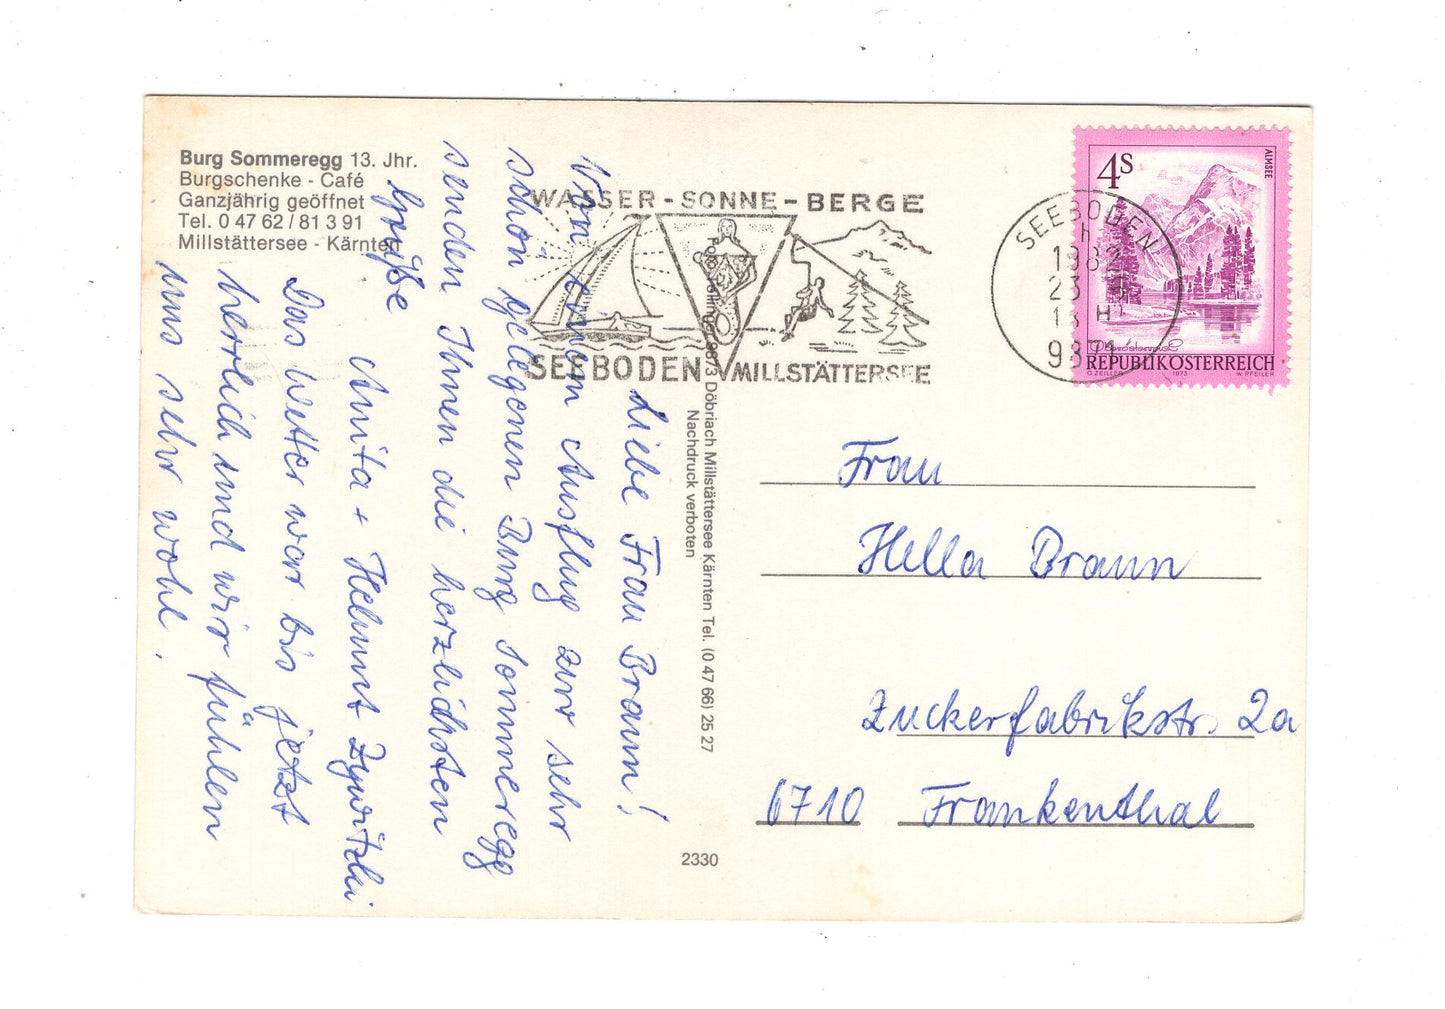 Burg Sommeregg 13. Jhr.
Burgschenke - Café
Ganzjährig geöffnet
Tel. 0 47 62 / 81 3 91
Millstättersee - Kärnten
WASSER - SONNE - BERGE
SEEBODEN MILLSTÄTTERSEE
SEEBODEN
1982
23
18 H
9871
4 S
ALMSEE
REPUBLIK ÖSTERREICH
O. ZEILLER 1973 W. PFEILER
Liebe Frau Braun!
Von einem Ausflug zur sehr
schön gelegenen Burg Sommeregg
senden Ihnen die herzlichsten
Grüße
Anita + Helmut
Das Wetter war bis jetzt
herrlich und wir fühlen
uns sehr wohl.
9873 Döbriach Millstättersee Kärnten Tel. (0 47 66) 25 27
Nachdruck verboten
2330
Frau
Hella Braun
Zuckerfabrikstr. 2a
6710 Frankenthal